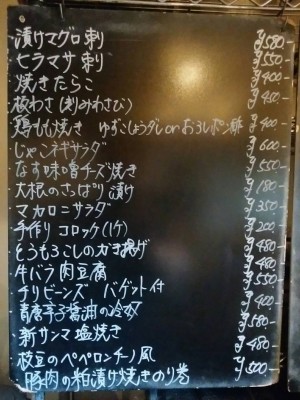 漬けマグロ刺 ¥580-
ヒラマサ刺 ¥550
焼きたらこ ¥400
板わさ(刻みわさび) ¥450-
鶏もも焼き ゆずこしょうダレorおろしポン酢 ¥400
じゃこネギサラダ ¥600
なす味噌チーズ焼き ¥550
大根のさっぱり漬け ¥180
マカロニサラダ ¥350
手作りコロッケ(1ケ) ¥200
とうもろこしのかき揚げ ¥480
牛バラ肉豆腐 ¥480
チリビーンズ バゲット付 ¥550
青唐辛子醤油の冷奴 ¥400
新サンマ塩焼き ¥580-
枝豆のペペロンチーノ風 ¥480
豚肉の粕漬け焼きのり巻 ¥500-